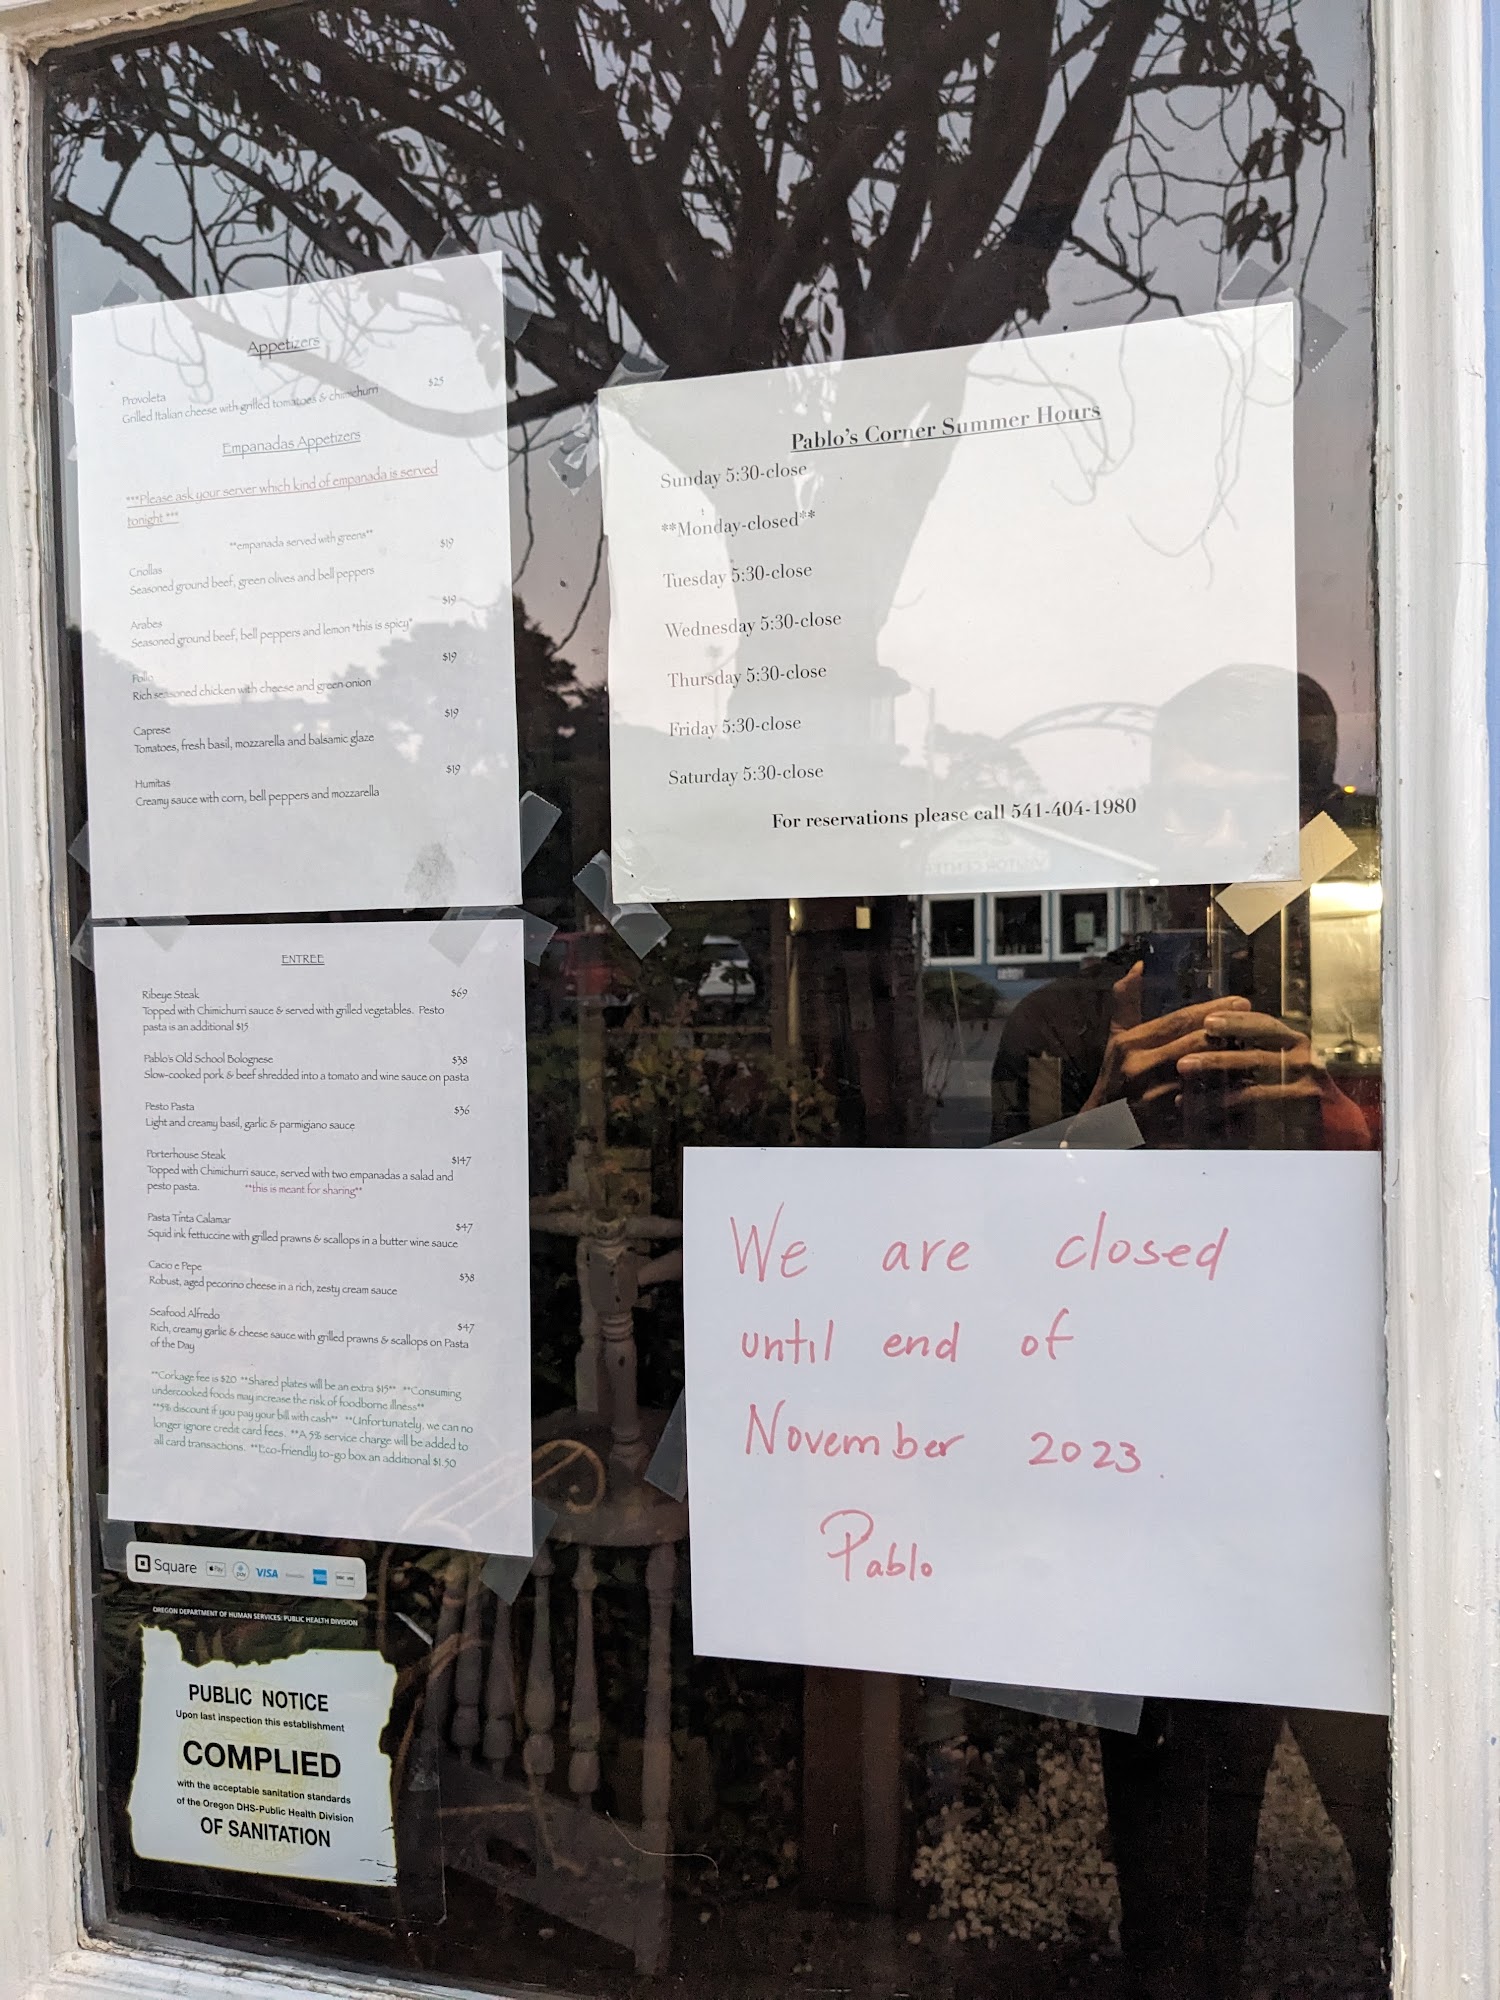 Appetizers
Provoleta $25
Grilled Italian cheese with grilled tomatoes & chimichurri
Empanadas Appetizers
***Please ask your server which kind of empanada is served
tonight ***
**empanada served with greens**
Criollas $19
Seasoned ground beef, green olives and bell peppers
Arabes $19
Seasoned ground beef, bell peppers and lemon *this is spicy*
Pollo $19
Rich seasoned chicken with cheese and green onion
Caprese $19
Tomatoes, fresh basil, mozzarella and balsamic glaze
Humitas $19
Creamy sauce with corn, bell peppers and mozzarella
ENTREE
Ribeye Steak $69
Topped with Chimichurri sauce & served with grilled vegetables. Pesto
pasta is an additional $15
Pablo's Old School Bolognese $38
Slow-cooked pork & beef shredded into a tomato and wine sauce on pasta
Pesto Pasta $36
Light and creamy basil, garlic & parmigiano sauce
Porterhouse Steak $147
Topped with Chimichurri sauce, served with two empanadas a salad and
pesto pasta. **this is meant for sharing**
Pasta Tinta Calamar $47
Squid ink fettuccine with grilled prawns & scallops in a butter wine sauce
Cacio e Pepe $38
Robust, aged pecorino cheese in a rich, zesty cream sauce
Seafood Alfredo $47
Rich, creamy garlic & cheese sauce with grilled prawns & scallops on Pasta
of the Day
**Corkage fee is $20 **Shared plates will be an extra $15** **Consuming
undercooked foods may increase the risk of foodborne illness**
**5% discount if you pay your bill with cash** **Unfortunately, we can no
longer ignore credit card fees. **A 5% service charge will be added to
all card transactions. **Eco-friendly to-go box an additional $1.50
Square Pay VISA
OREGON DEPARTMENT OF HUMAN SERVICES: PUBLIC HEALTH DIVISION
PUBLIC NOTICE
Upon last inspection this establishment
COMPLIED
with the acceptable sanitation standards
of the Oregon DHS-Public Health Division
OF SANITATION
Pablo's Corner Summer Hours
Sunday 5:30-close
**Monday-closed**
Tuesday 5:30-close
Wednesday 5:30-close
Thursday 5:30-close
Friday 5:30-close
Saturday 5:30-close
For reservations please call 541-404-1980
We are closed
until end of
November 2023.
Pablo